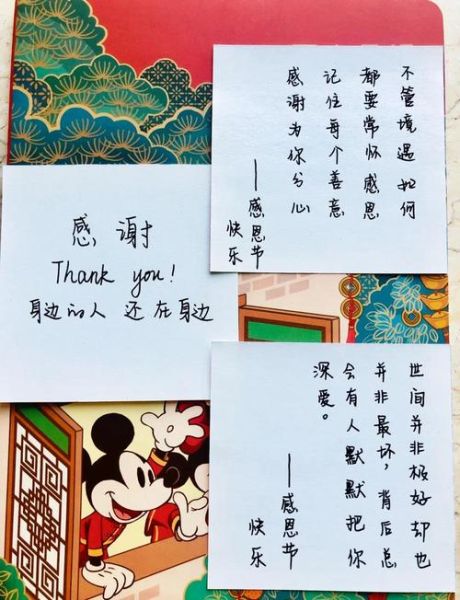 不管境遇如何
都要常怀感恩
记住每个善意
感谢为你分心
——感恩节
快乐
感谢
Thank you!
身边的人 还在身边
世间并非极好却也
并非最坏，背后总
会有人默默把你
深爱。
——感恩节
快乐